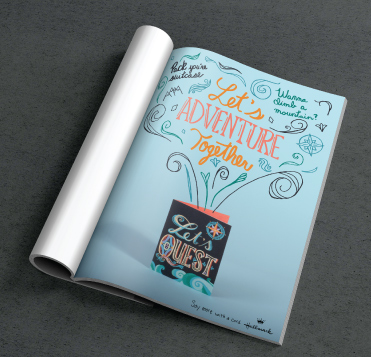 Pack you're
suitcase
Wanna
climb a
mountain?
Let's
ADVENTURE
Together
Let's
QUEST
Say more with a card. Hallmark